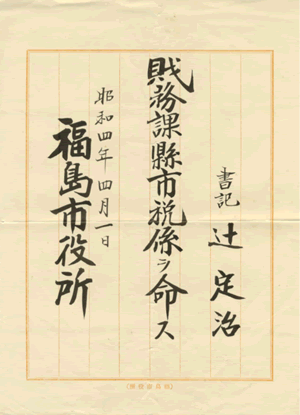 書記 辻定治
財務課縣市税係ヲ命ス
昭和四年四月一日
福島市役所